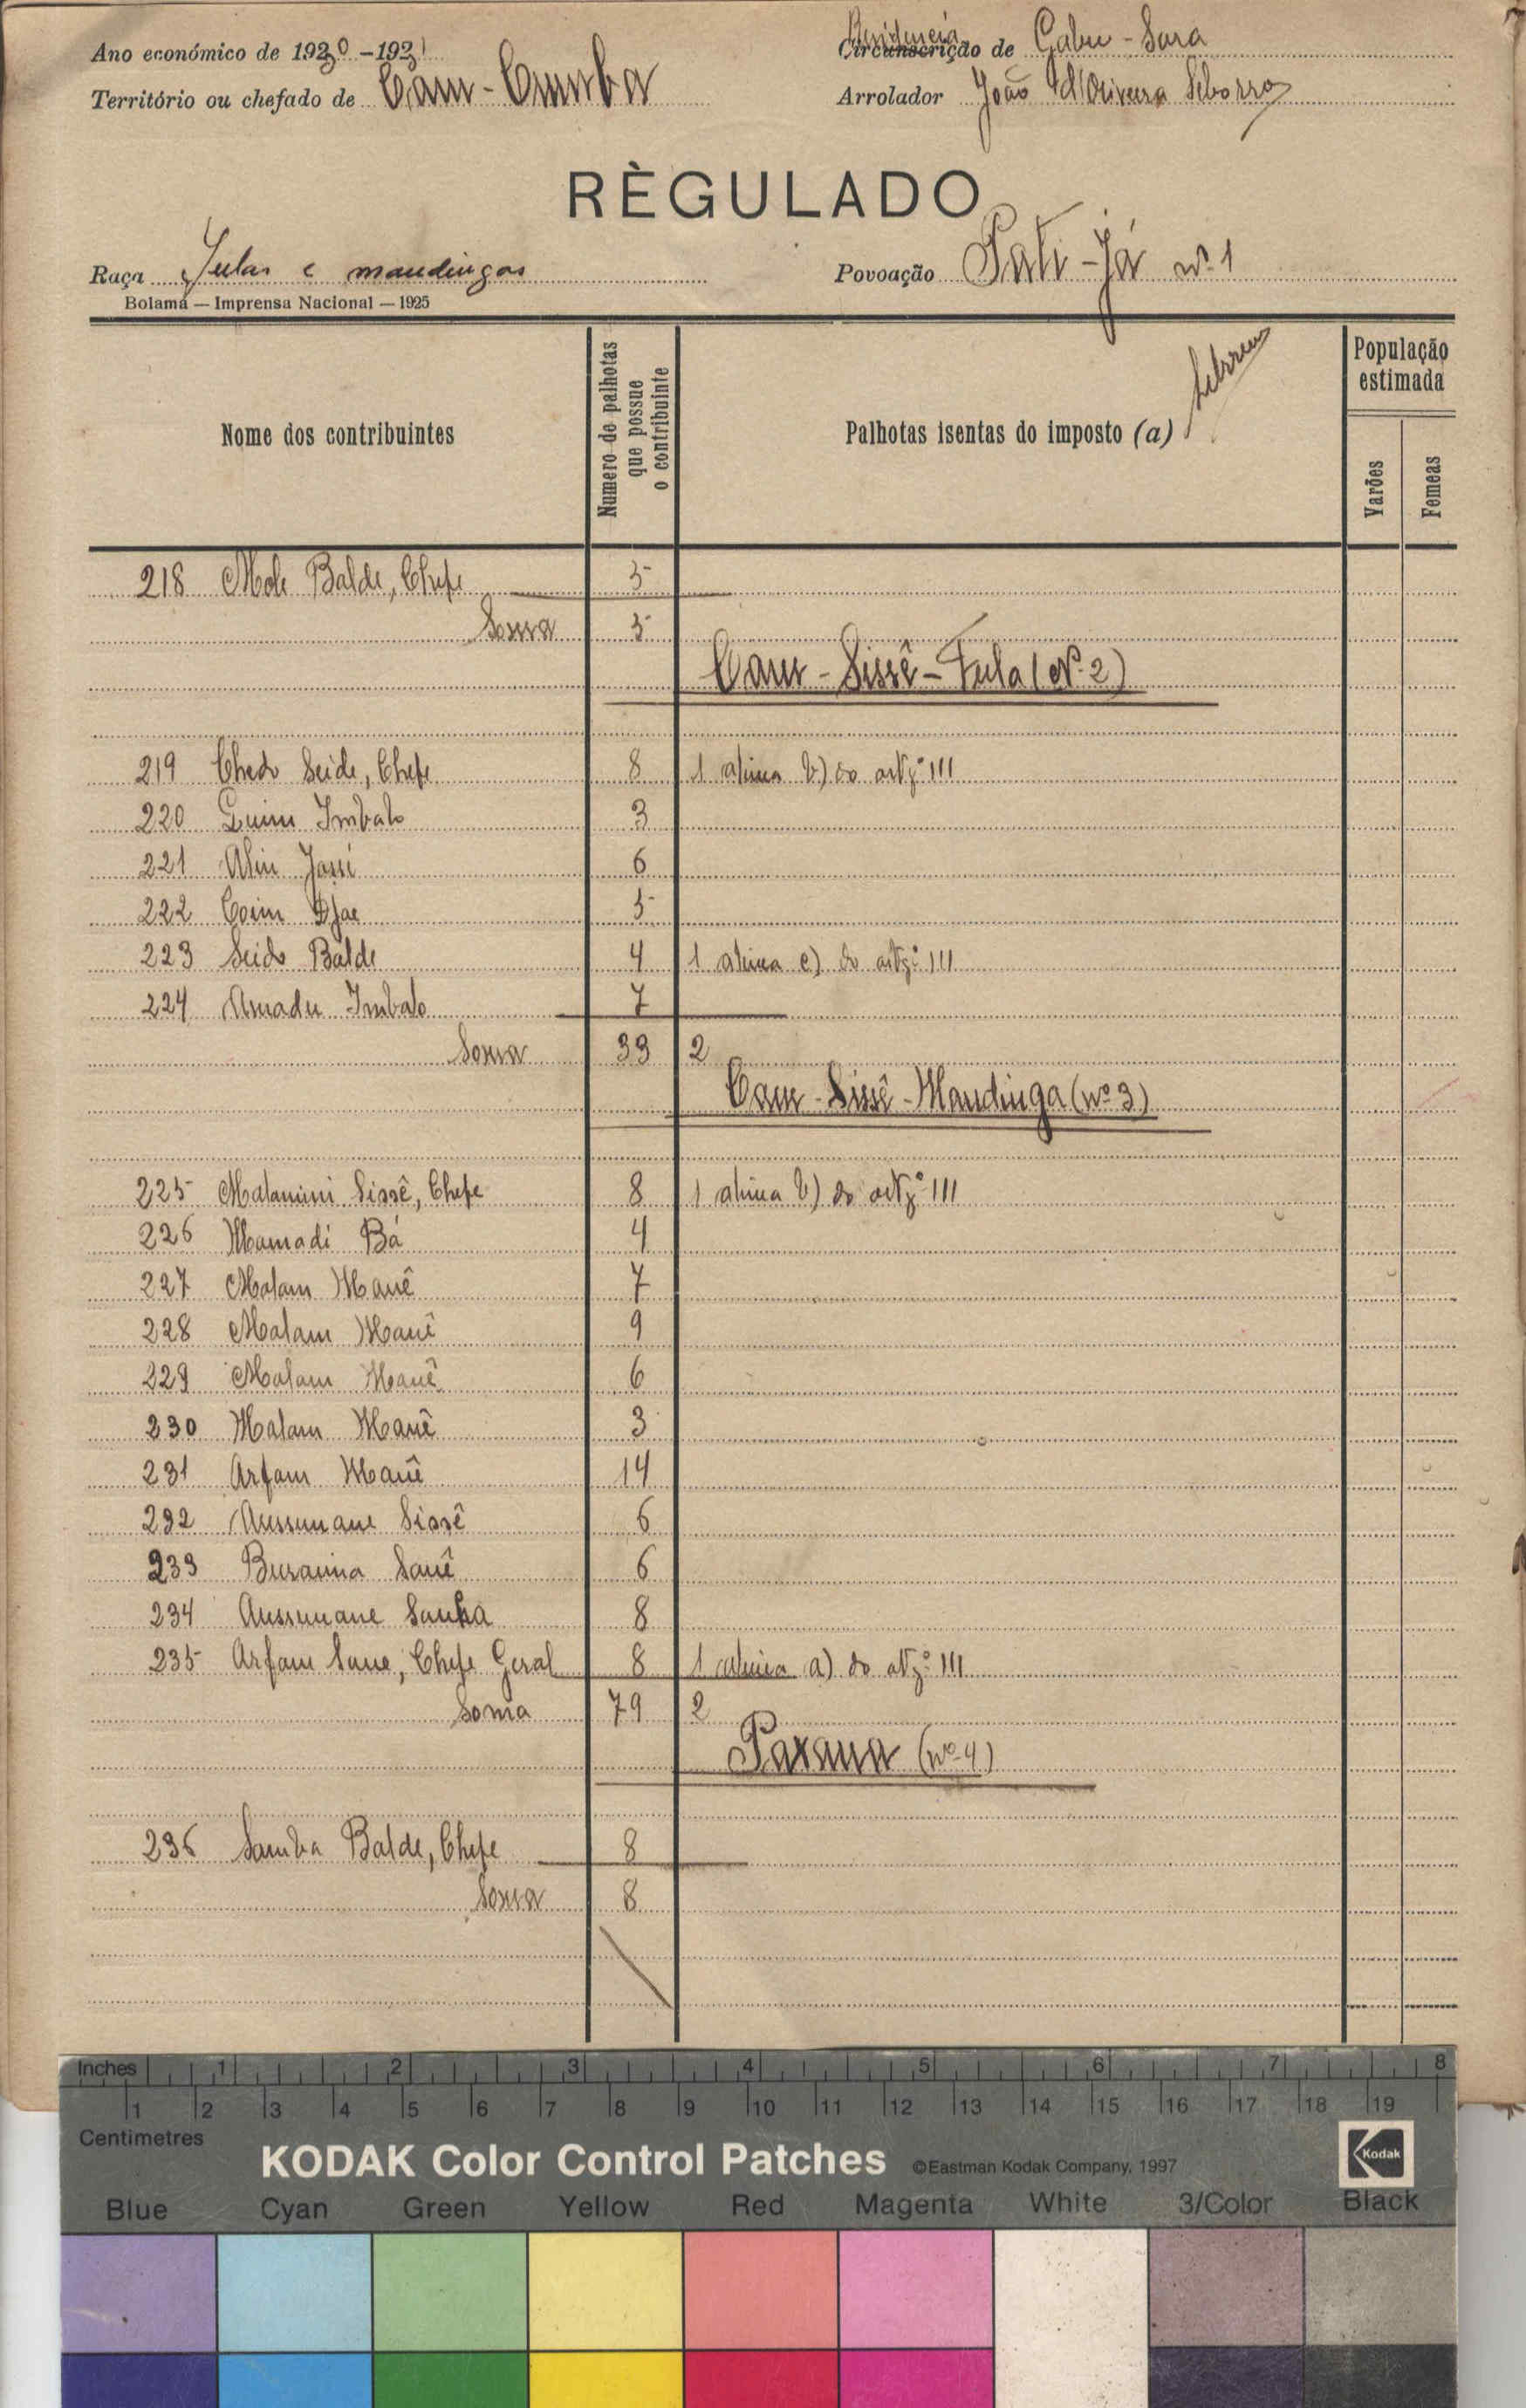 Ano económico de 1930-1931
Residencia
Circunscrição de Gabu-Sara
Território ou chefado de Cam-Cumba
Arrolador João d'Oliveira
RÈGULADO
Raça Fulas e mandingas
Povoação Pati-Já nº 1
Bolamá — Imprensa Nacional — 1925
Nome dos contribuintes
Numero de palhotas que possue o contribuinte
Palhotas isentas do imposto (a)
População estimada
Varões
Femeas
218 Mole Balde, Chefe 5
Soma 5
Cam-Sissê-Fula (Nº 2)
219 Chedo Seide, Chefe 8 1 alinea b) do artgº III
220 Guim Imbalo 3
221 Aliu 6
222 Djae 5
223 Seido Balde 4 1 alinea c) do artgº III
224 Amadu Imbalo 7
Soma 33 2
Cam-Sissê-Mandinga (nº 3)
225 Malamini Sissê, Chefe 8 1 alinea b) do artgº III
226 Mamadi Bá 4
227 Malam Manê 7
228 Malam Manê 9
229 Malam Manê 6
230 Malam Manê 3
231 Arfam Manê 14
232 Aussumane Sissê 6
233 Buraima Sanê 6
234 Aussumane Sanha 8
235 Arfam Sane, Chefe Geral 8 1 alinea a) do artgº III
Soma 79 2
Paxana (nº 4)
236 Samba Balde, Chefe 8
Soma 8
Inches 1 2 3 4 5 6 7 8
1 2 3 4 5 6 7 8 9 10 11 12 13 14 15 16 17 18 19
Centimetres
KODAK Color Control Patches ©Eastman Kodak Company, 1997
Kodak
Blue Cyan Green Yellow Red Magenta White 3/Color Black